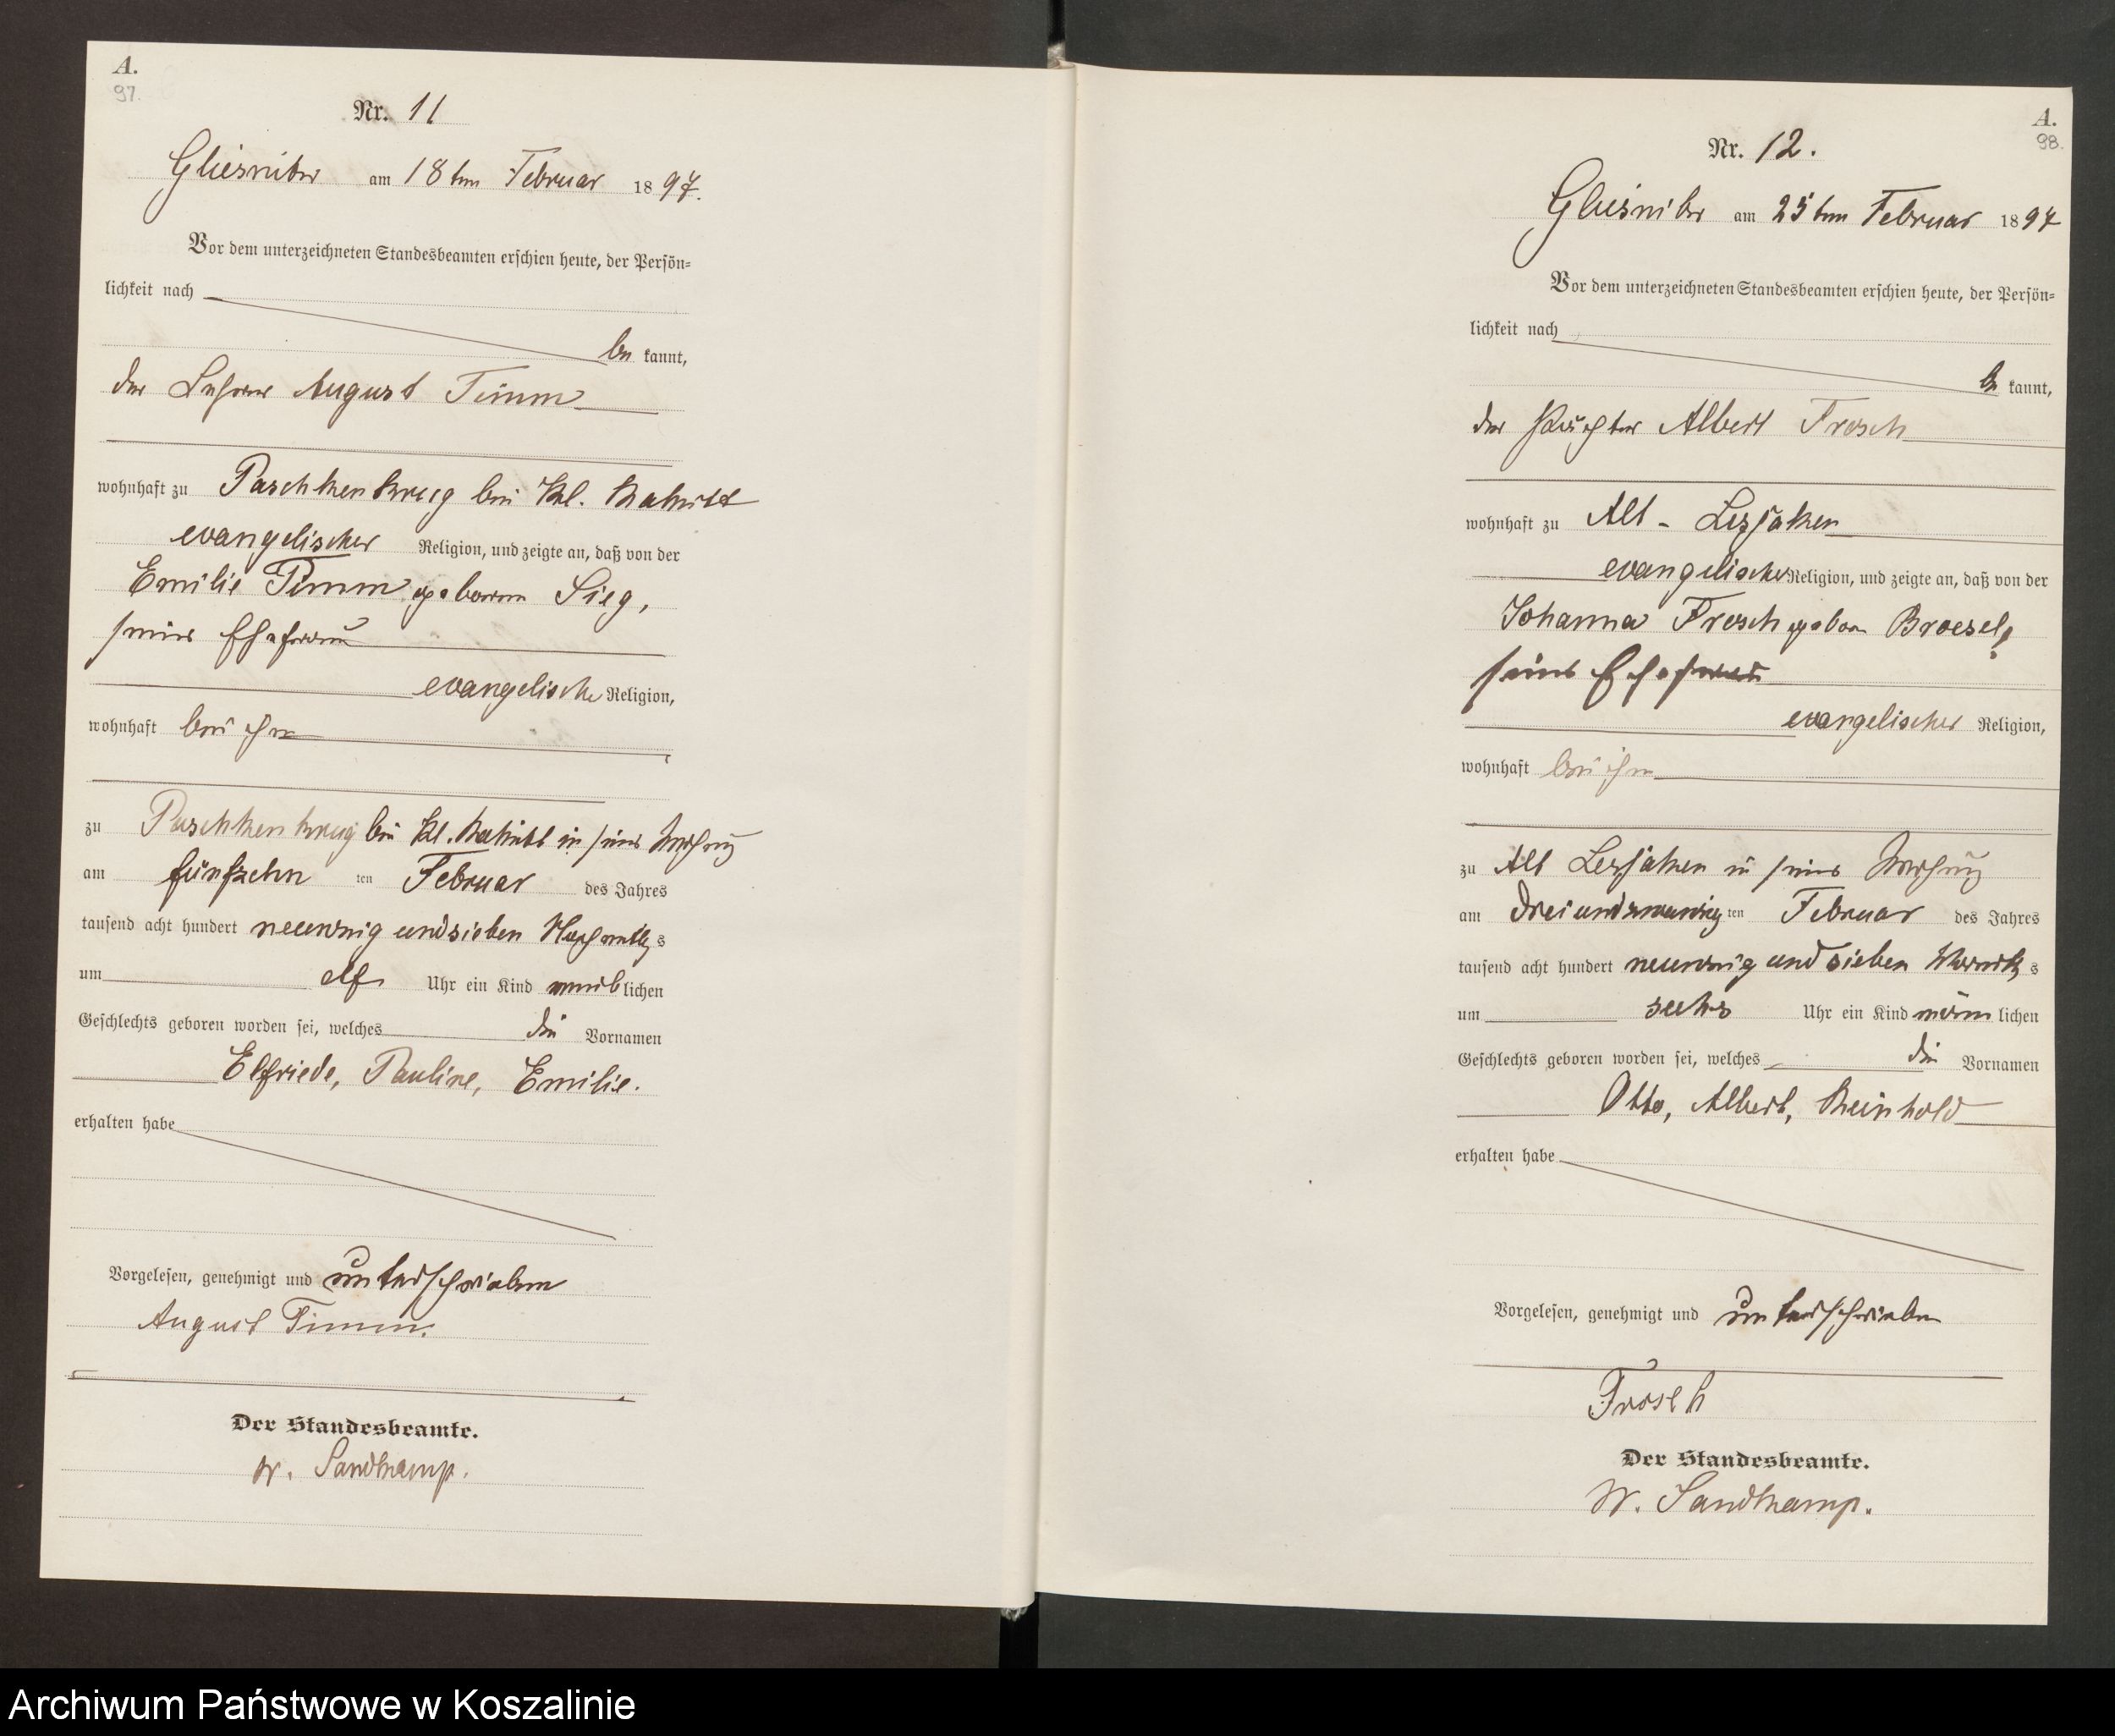 A.
97.
Nr. 11
Gliesnitz am 18ten Februar 1897.
Vor dem unterzeichneten Standesbeamten erschien heute, der Persön-
lichkeit nach
be kannt,
der Lehrer August Timm
wohnhaft zu Paschkenkrug bei Kl. Rakitt
evangelischer Religion, und zeigte an, daß von der
Emilie Timm geborenen Sieg,
seiner Ehefrau
evangelische Religion,
wohnhaft bei ihm
zu Paschkenkrug bei Kl. Rakitt in seiner Wohnung
am fünfzehn ten Februar des Jahres
tausend acht hundert neunzig und sieben Nachmittags
um elf Uhr ein Kind weiblichen
Geschlechts geboren worden sei, welches die Vornamen
Elfriede, Pauline, Emilie.
erhalten habe
Vorgelesen, genehmigt und unterschrieben
August Timm.
Der Standesbeamte.
W. Sandkamp.
A.
98.
Nr. 12.
Gliesnitz am 25ten Februar 1897
Vor dem unterzeichneten Standesbeamten erschien heute, der Persön-
lichkeit nach
be kannt,
der Pächter Albert Frosch
wohnhaft zu Alt-
evangelischer Religion, und zeigte an, daß von der
Johanna Frosch geboren Broesel,
seiner Ehefrau
evangelischer Religion,
wohnhaft bei ihm
zu Alt in seiner Wohnung
am dreiundzwanzig ten Februar des Jahres
tausend acht hundert neunzig und sieben Vormittags
um sechs Uhr ein Kind männlichen
Geschlechts geboren worden sei, welches die Vornamen
Otto, Albert, Reinhold
erhalten habe
Vorgelesen, genehmigt und unterschrieben
Frosch
Der Standesbeamte.
W. Sandkamp.
Archiwum Państwowe w Koszalinie